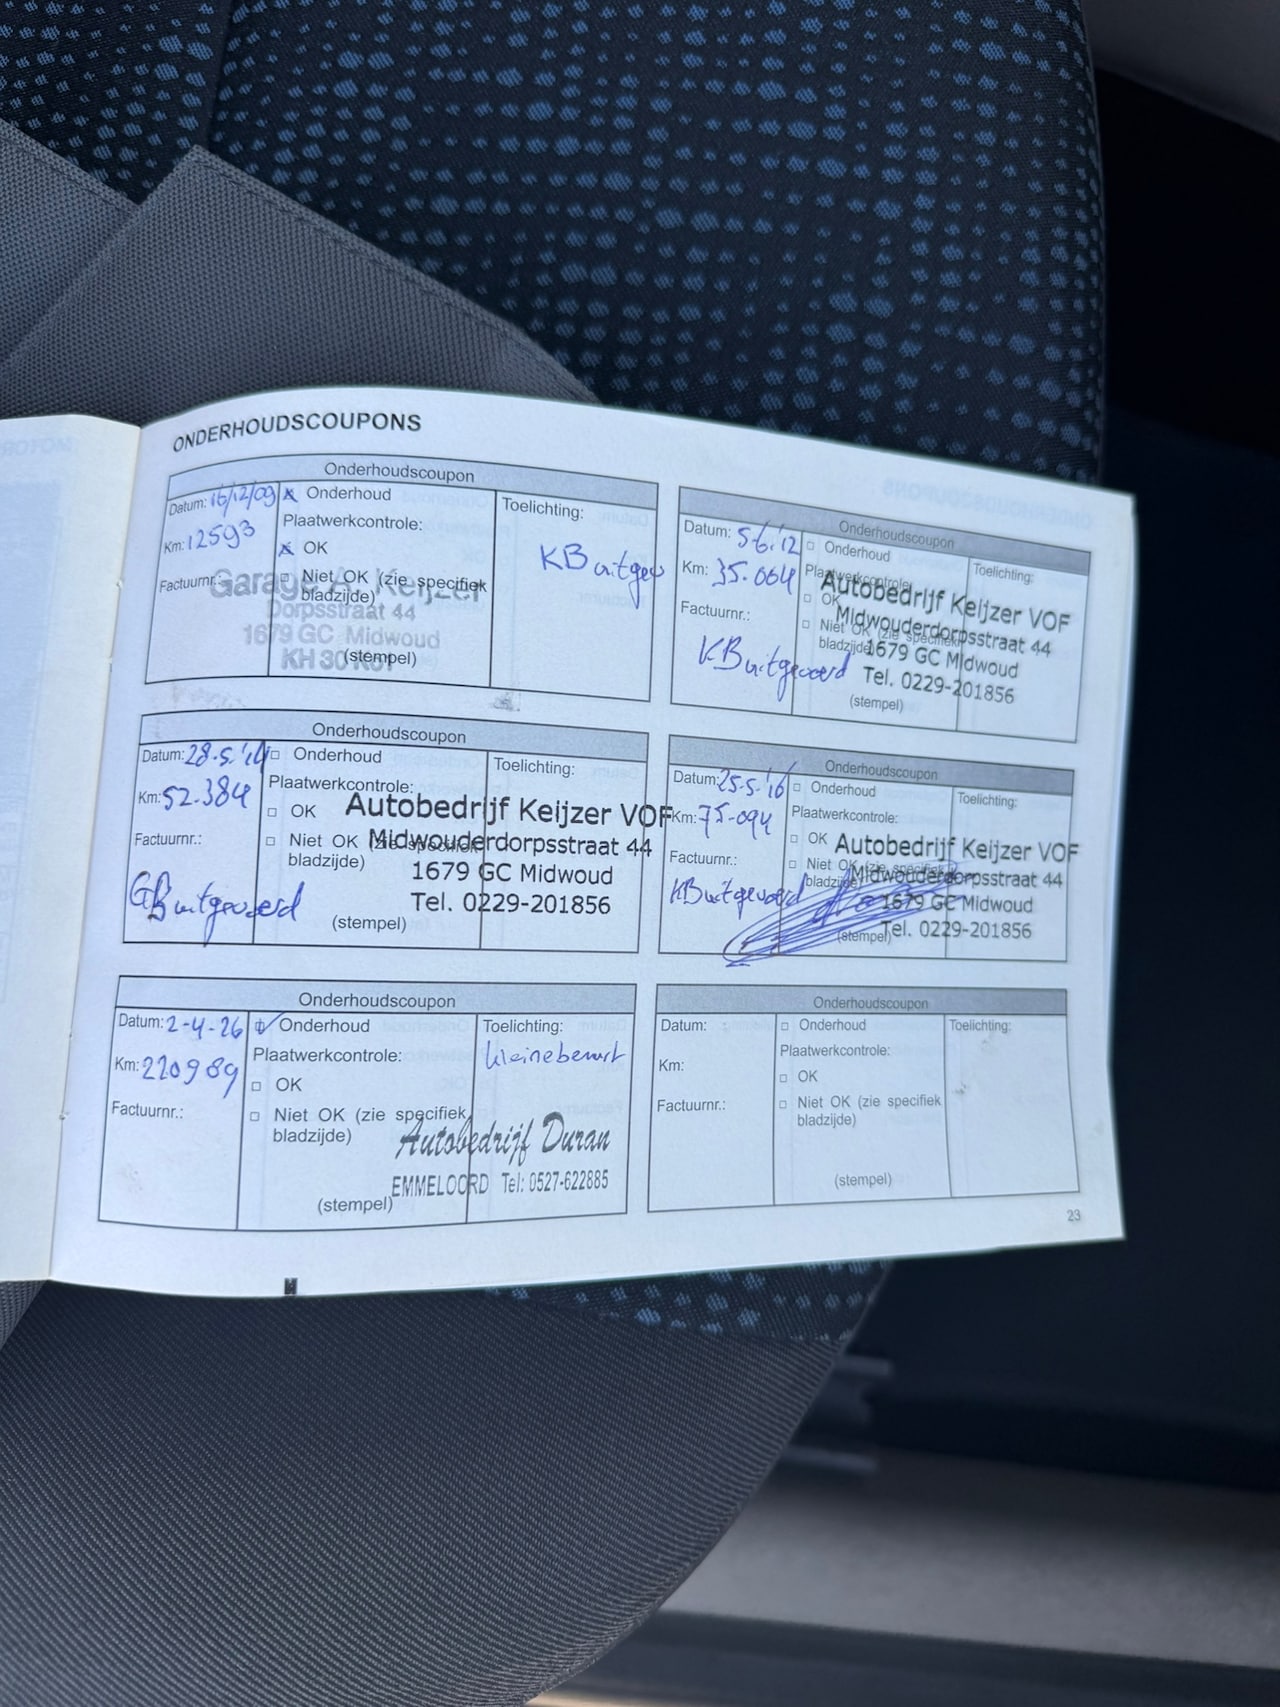 ONDERHOUDSCOUPONS
Onderhoudscoupon
Datum: 16/12/09
Km: 12593
Factuurnr.:
x Onderhoud
Plaatwerkcontrole:
x OK
□ Niet OK (zie specifiek
bladzijde)
(stempel)
Toelichting:
KB uitgev
Garage A. Keijzer
Dorpsstraat 44
1679 GC Midwoud
Onderhoudscoupon
Datum: 5-6-'12
Km: 35.064
Factuurnr.:
KB uitgevoerd
□ Onderhoud
Plaatwerkcontrole:
□ OK
□ Niet OK (zie specifiek
bladzijde)
(stempel)
Toelichting:
Autobedrijf Keijzer VOF
Midwouderdorpsstraat 44
1679 GC Midwoud
Tel. 0229-201856
Onderhoudscoupon
Datum: 28-5-'14
Km: 52.384
Factuurnr.:
GB uitgevoerd
□ Onderhoud
Plaatwerkcontrole:
□ OK
□ Niet OK (zie specifiek
bladzijde)
(stempel)
Toelichting:
Autobedrijf Keijzer VOF
Midwouderdorpsstraat 44
1679 GC Midwoud
Tel. 0229-201856
Onderhoudscoupon
Datum: 25-5-'16
Km: 75-094
Factuurnr.:
KB uitgevoerd
□ Onderhoud
Plaatwerkcontrole:
□ OK
□ Niet OK (zie specifiek
bladzijde)
(stempel)
Toelichting:
Autobedrijf Keijzer VOF
Midwouderdorpsstraat 44
1679 GC Midwoud
Tel. 0229-201856
Onderhoudscoupon
Datum: 2-4-26
Km: 220989
Factuurnr.:
☑ Onderhoud
Plaatwerkcontrole:
□ OK
□ Niet OK (zie specifiek
bladzijde)
(stempel)
Toelichting:
kleine beurt
Autobedrijf Duran
EMMELOORD Tel: 0527-622885
Onderhoudscoupon
Datum:
Km:
Factuurnr.:
□ Onderhoud
Plaatwerkcontrole:
□ OK
□ Niet OK (zie specifiek
bladzijde)
(stempel)
Toelichting:
23